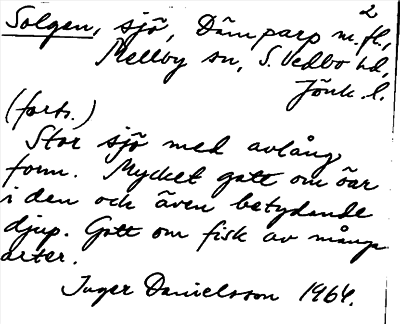 2
Solgen, sjö, Dämparp m.fl.,
Mellby sn, S. Vedbo hd,
Jönk. l.
(forts.)
Stor sjö med avlång
form. Mycket gott om öar
i den och även betydande
djup. Gott om fisk av många
arter.
Inger Danielsson 1964.